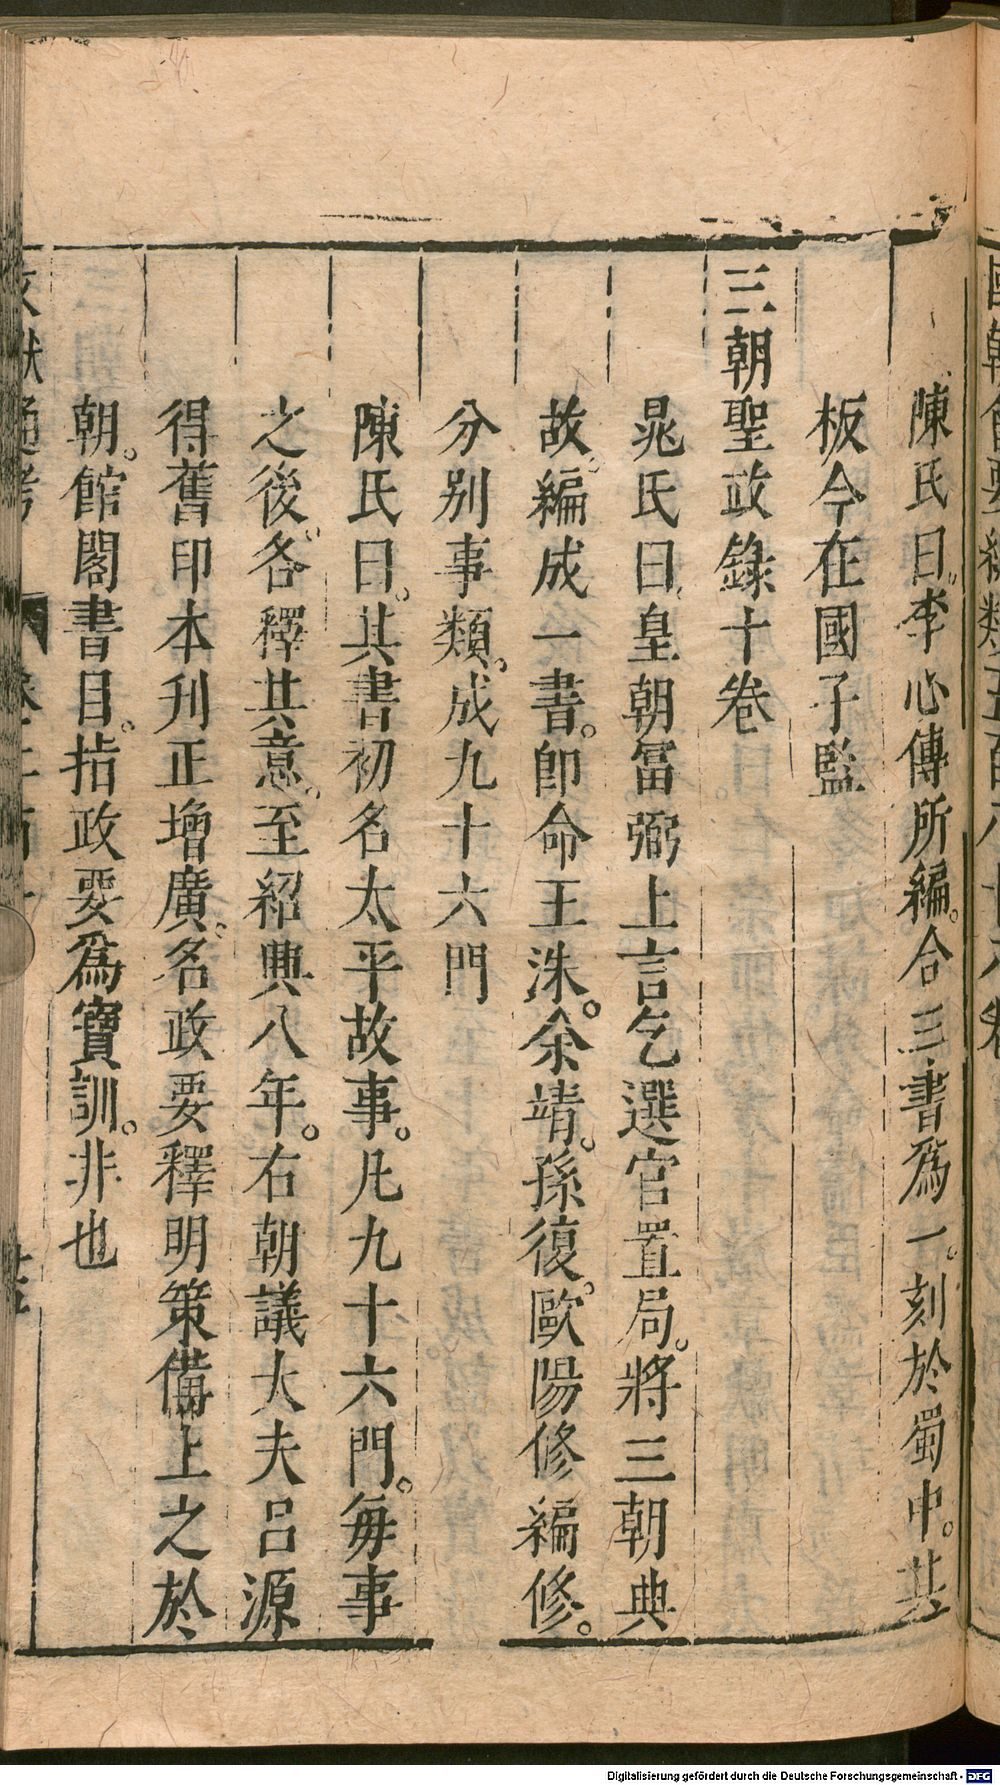 陳氏曰。李心傳所編。合三書爲一。刻於蜀中。其
板今在國子監
三朝聖政錄十卷
晁氏曰。皇朝富弼上言乞選官置局。將三朝典
故。編成一書。卽命王洙。余靖。孫復。歐陽修編修。
分别事類。成九十六門
陳氏曰。其書初名太平故事。凡九十六門。每事
之後。各釋其意。至紹興八年。右朝議大夫呂源
得舊印本刋正增廣。名政要釋明策備上之於
朝。館閣書目。指政要爲寶訓。非也
Digitalisierung gefördert durch die Deutsche Forschungsgemeinschaft - DFG